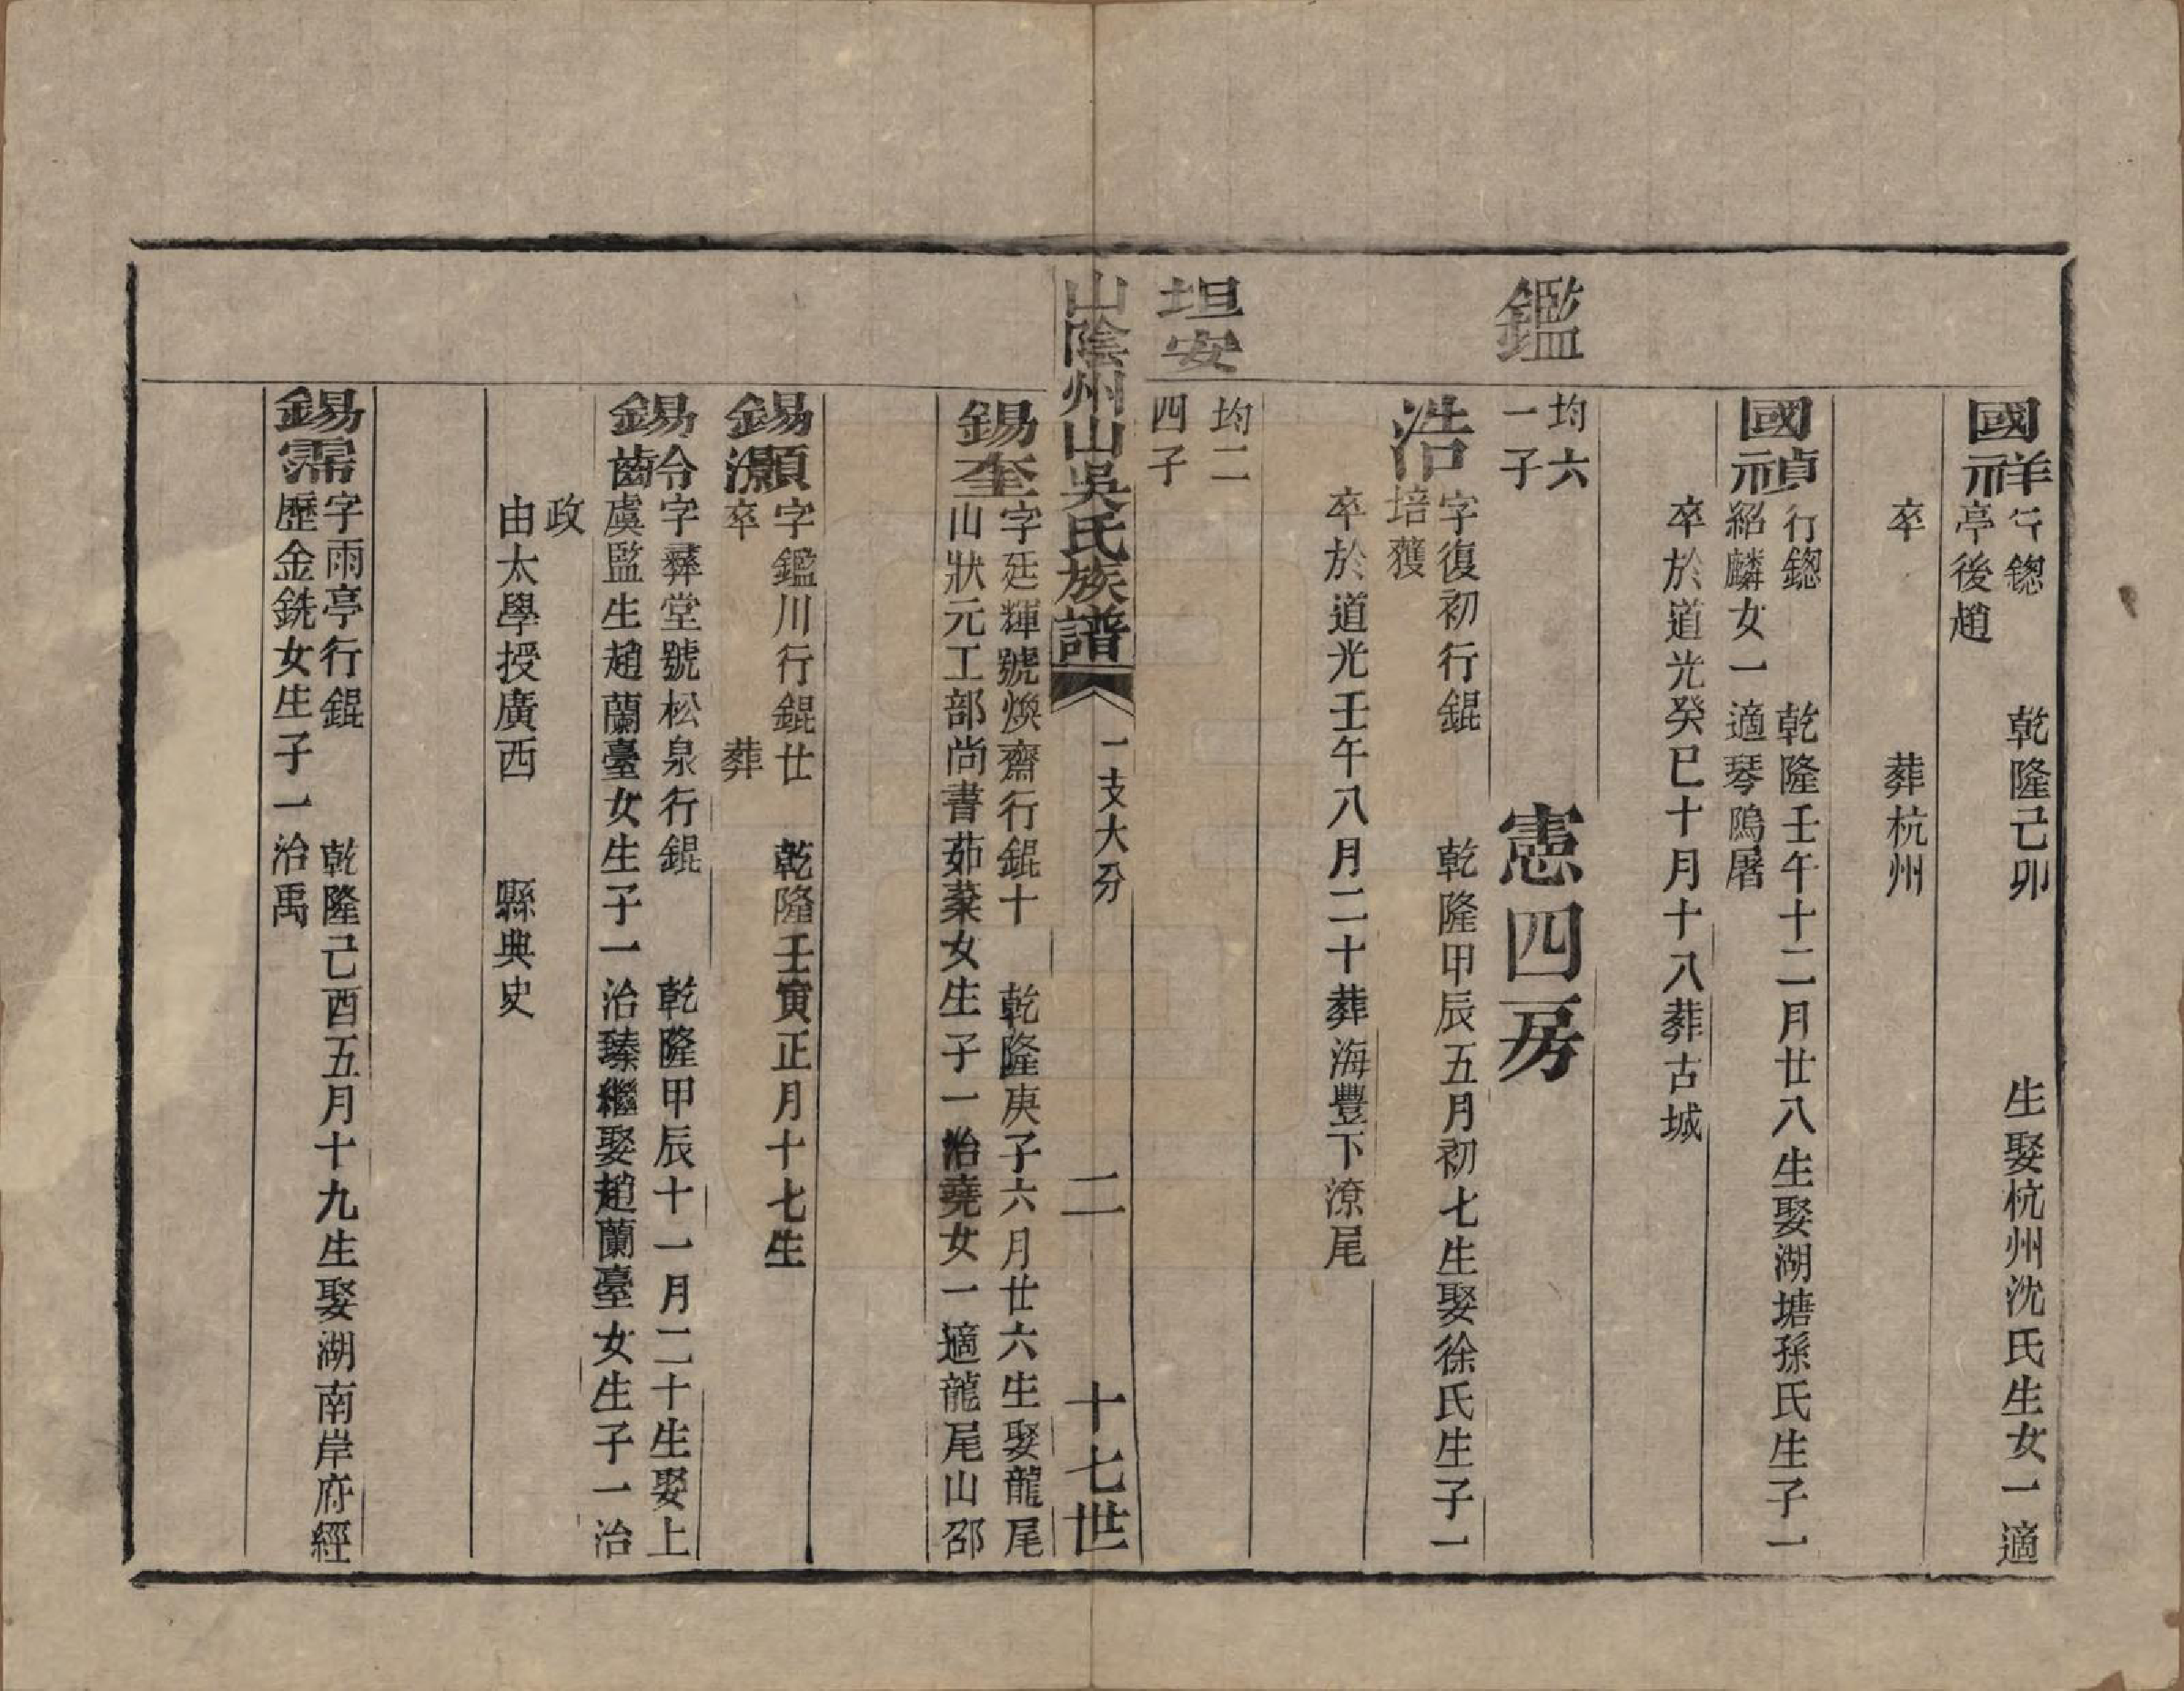 國祥
行鍯 乾隆己卯 生娶杭州沈氏生女一適
亭後趙
卒 葬杭州
國禎
行鍯 乾隆壬午十二月廿八生娶湖塘孫氏生子一
紹麟女一適琴鴎屠
卒於道光癸巳十月十八葬古城
鑑
均六
一子
憲四房
浩
字復初行錕 乾隆甲辰五月初七生娶徐氏生子一
培獲
卒於道光壬午八月二十葬海豐下潦尾
坦安
均二
四子
山陰州山吳氏族譜 一支大分 二 十七世
錫奎
字廷輝號煥齋行錕十 乾隆庚子六月廿六生娶龍尾
山狀元工部尚書茹棻女生子一治堯女一適龍尾山邵
錫灝
字鑑川行錕廿 乾隆壬寅正月十七生
卒 葬
錫齡
字彞堂號松泉行錕 乾隆甲辰十一月二十生娶上
虞監生趙蘭臺女生子一治臻繼娶趙蘭臺女生子一治
政
由太學授廣西 縣典史
錫霈
字雨亭行錕 乾隆己酉五月十九生娶湖南岸府經
歷金銑女生子一治禹